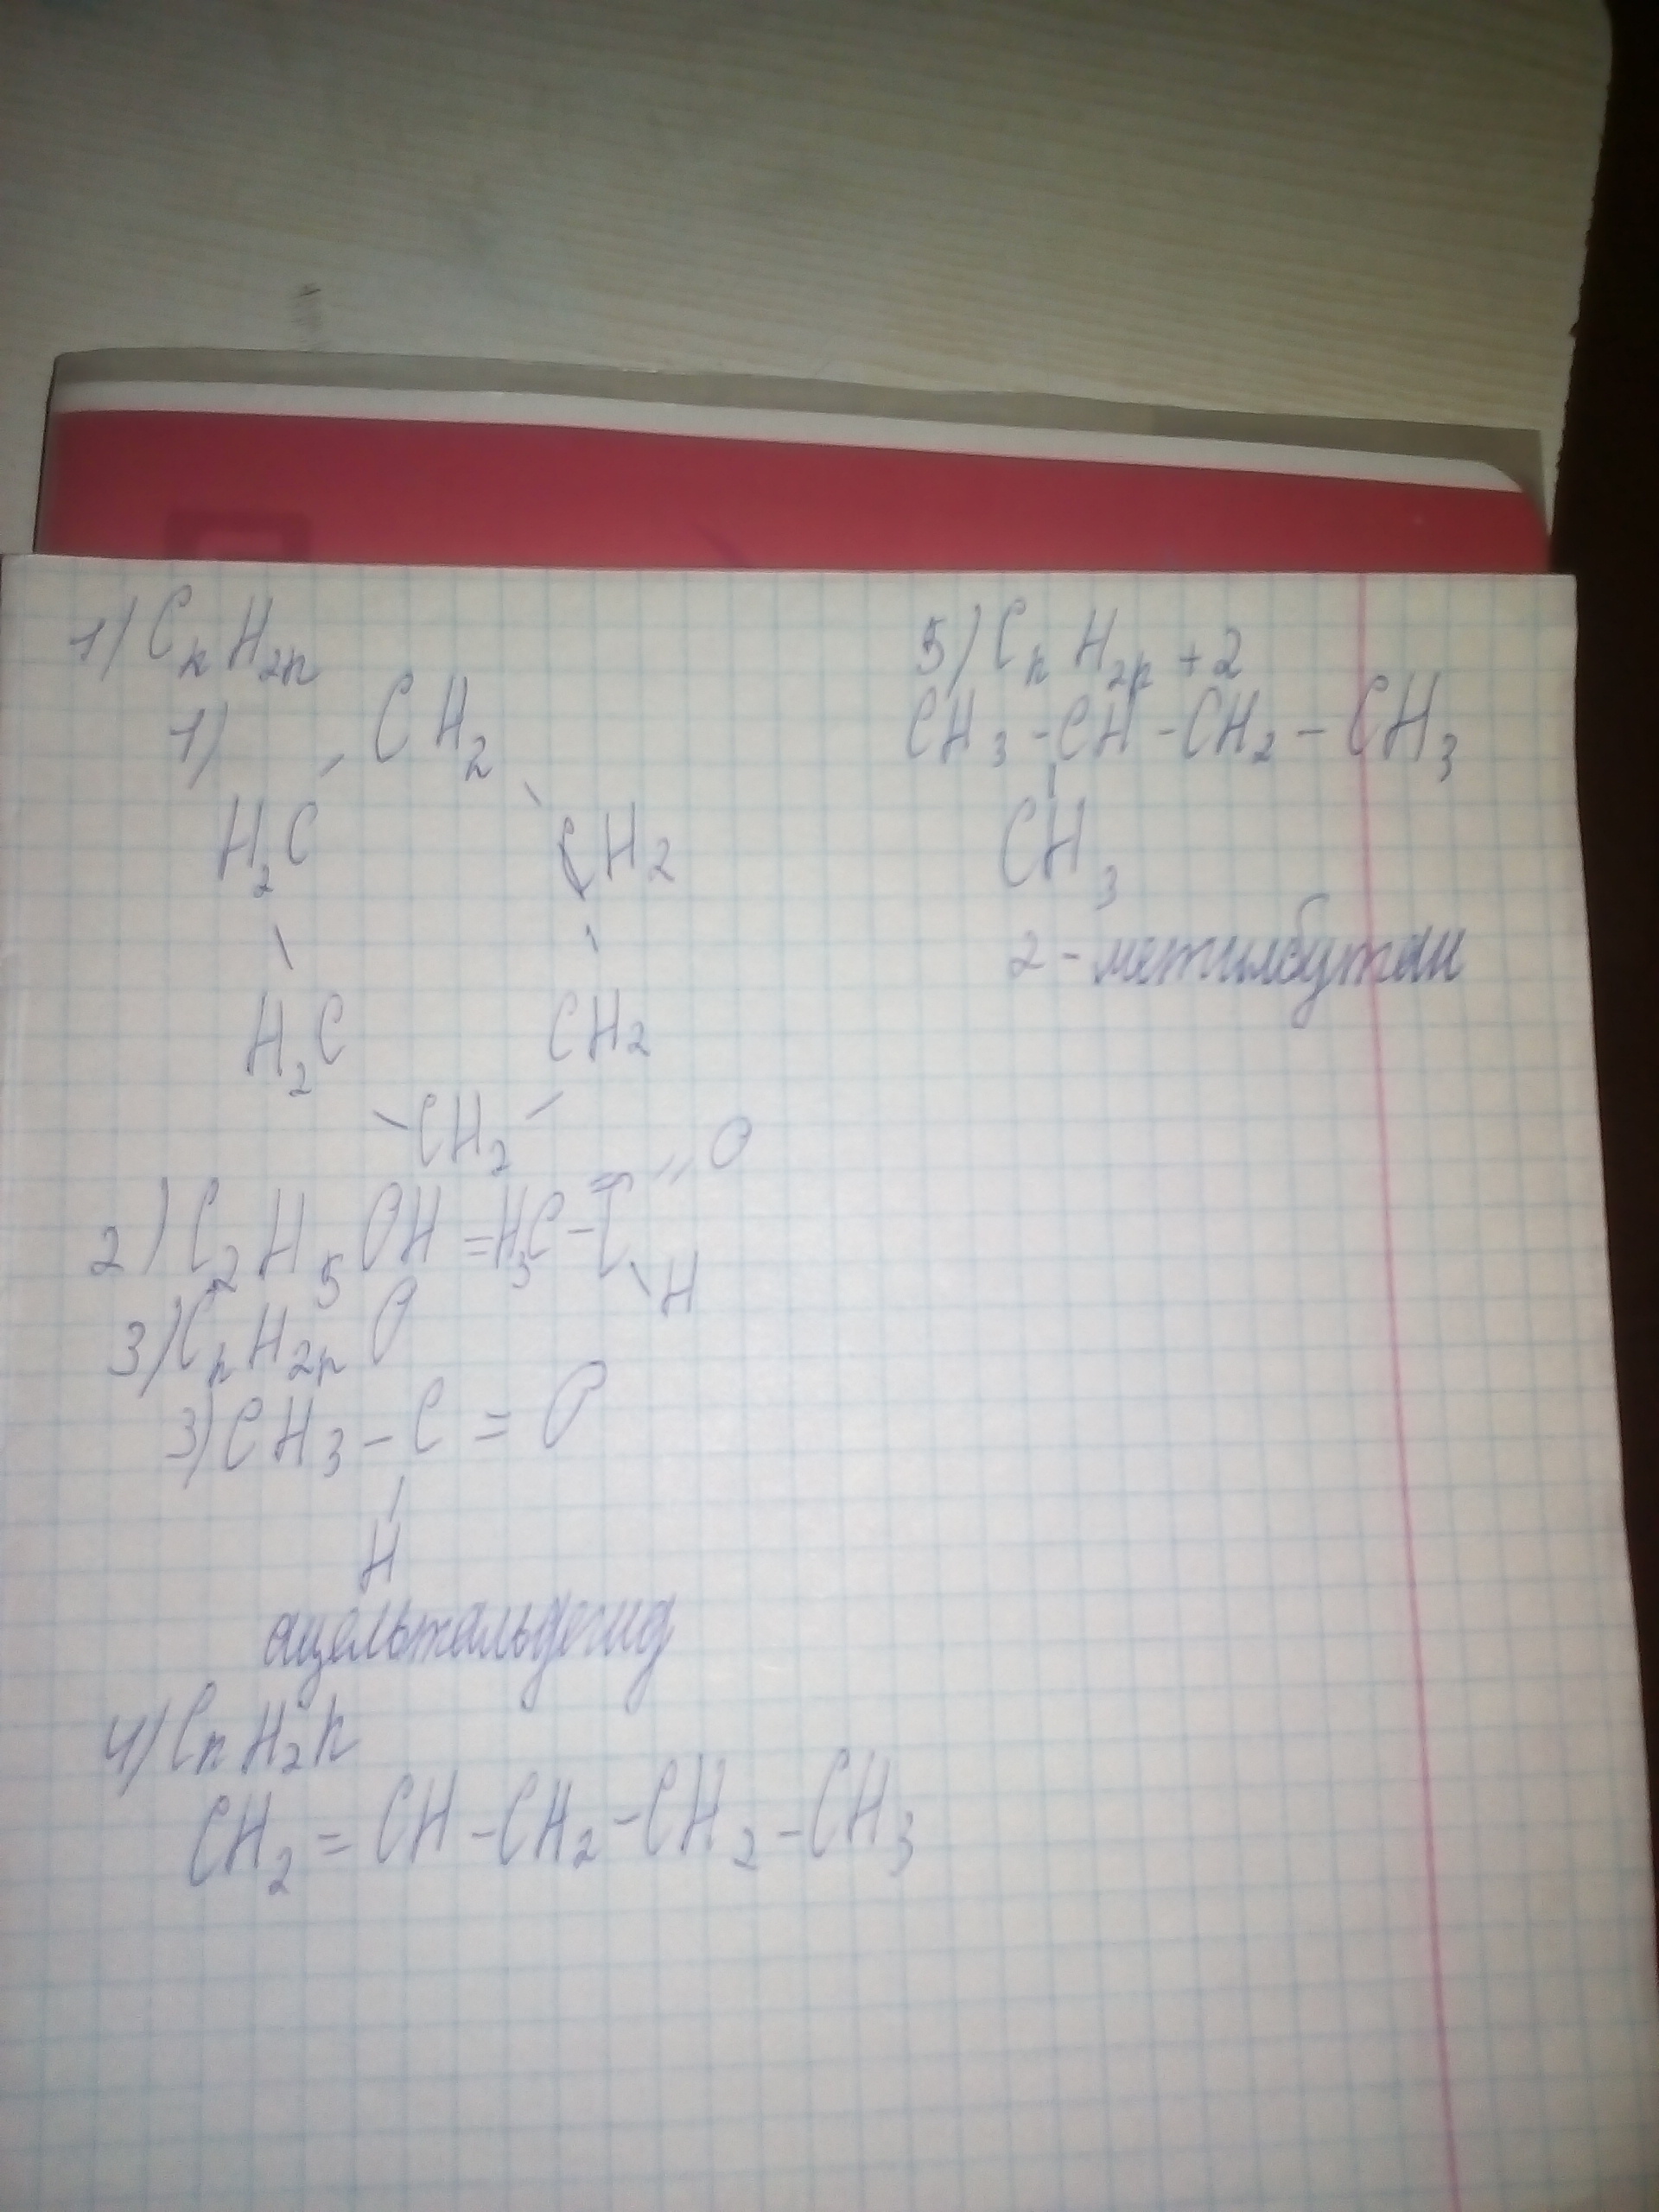 1) CnH2n
1) CH2
H2C CH2
H2C CH2
CH2
2) C2H5OH = H3C - C = O
H
3) CnH2nO
3) CH3 - C = O
H
ацельтальдегид
4) CnH2n
CH2 = CH - CH2 - CH2 - CH3
5) CnH2n + 2
CH3 - CH - CH2 - CH3
CH3
2 - метилбутан